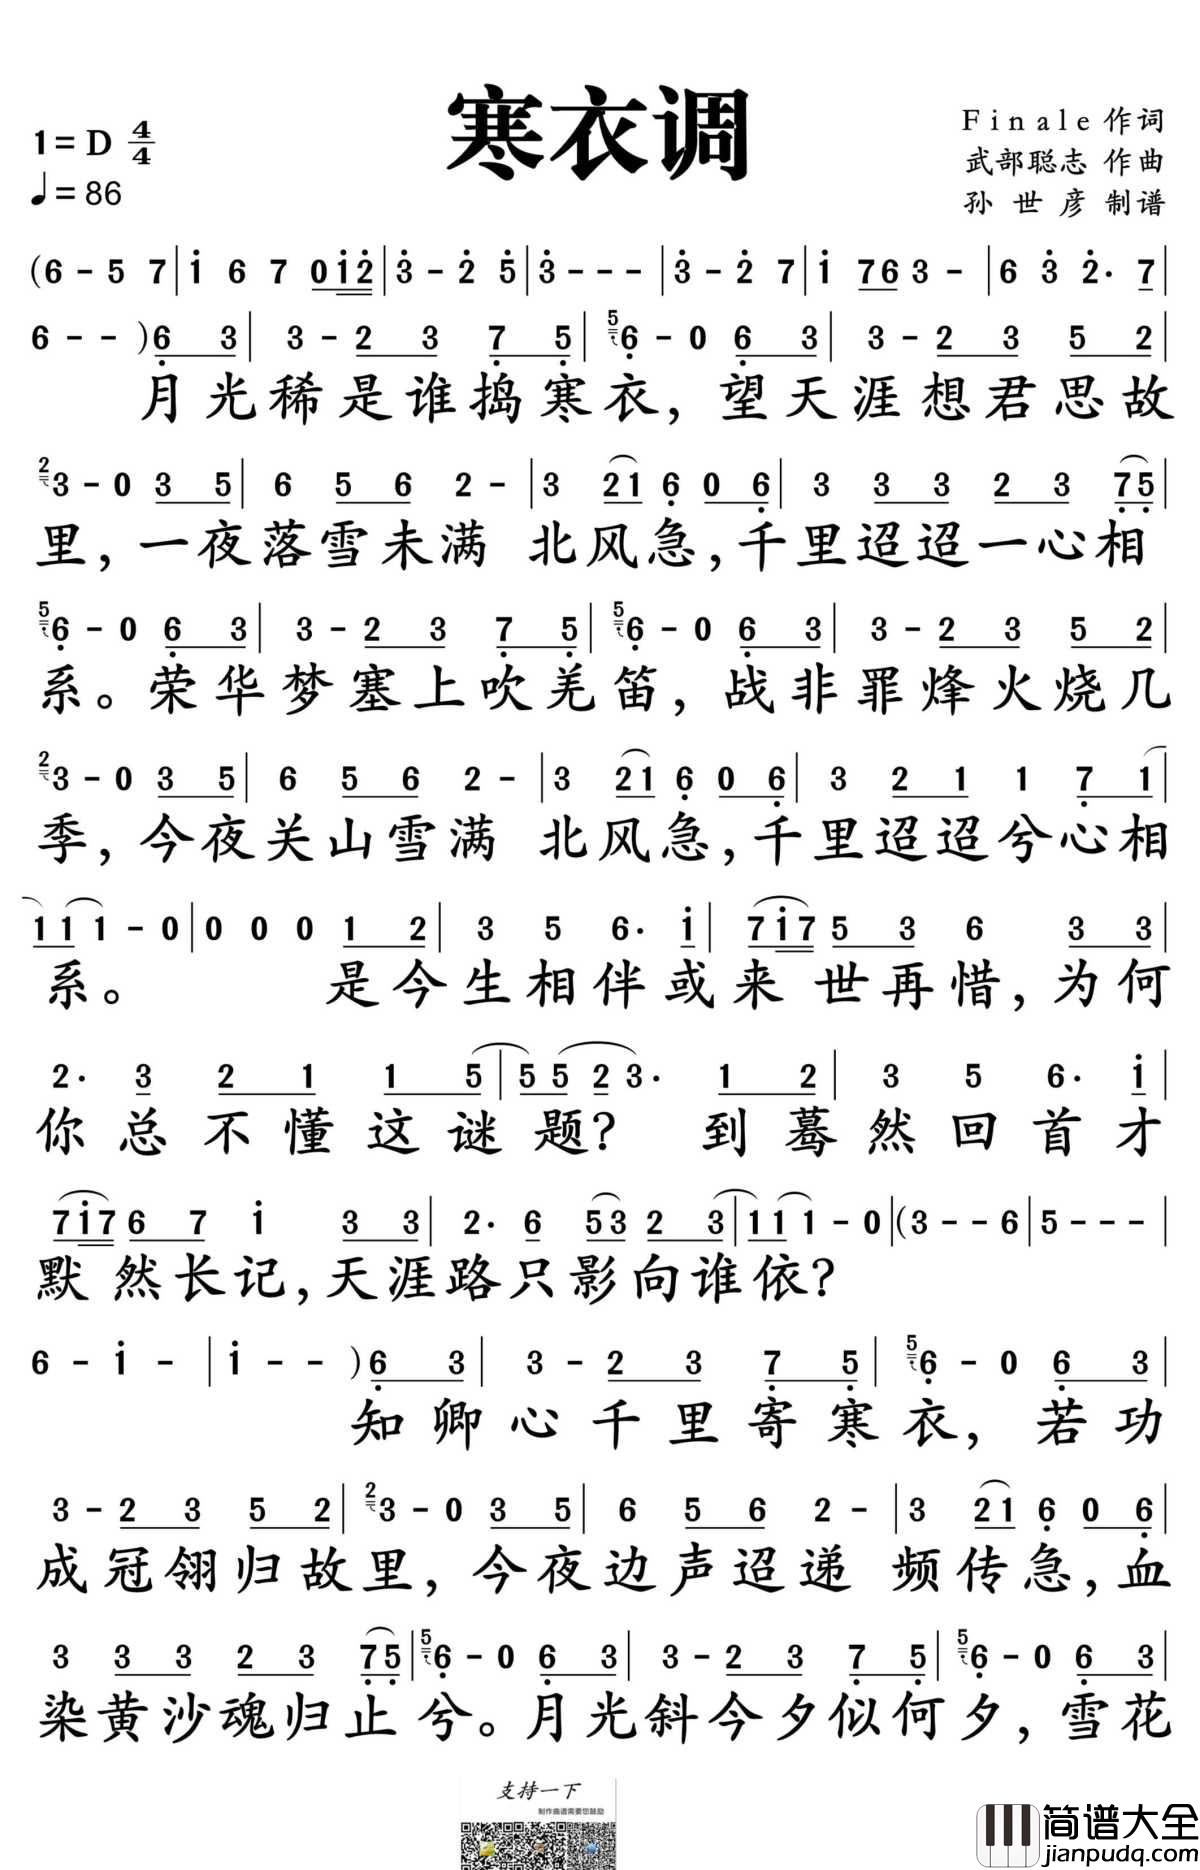 寒衣调
1=D 4/4
♩=86
Finale作词
武部聪志 作曲
孙世彦 制谱
(6 - 5 7 | i 6 7 0i2 | 3 - 2 5 | 3 - - - | 3 - 2 7 | i 76 3 - | 6 3 2. 7 |
6 - - ) 6 3 | 3 - 2 3 7 5 | 5 6 - 0 6 3 | 3 - 2 3 5 2 |
月光稀是谁捣寒衣，望天涯想君思故
2 3 - 0 3 5 | 6 5 6 2 - | 3 21 6 0 6 | 3 3 3 2 3 75
里，一夜落雪未满 北风急，千里迢迢一心相
5 6 - 0 6 3 | 3 - 2 3 7 5 | 5 6 - 0 6 3 | 3 - 2 3 5 2 |
系。荣华梦塞上吹羌笛，战非罪烽火烧几
2 3 - 0 3 5 | 6 5 6 2 - | 3 21 6 0 6 | 3 2 1 1 7 1 |
季，今夜关山雪满 北风急，千里迢迢兮心相
1 1 1 - 0 | 0 0 0 1 2 | 3 5 6. i | 7i7 5 3 6 3 3 |
系。 是今生相伴或来 世再惜，为何
2. 3 2 1 1 5 | 5 5 2 3. 1 2 | 3 5 6. i |
你总不懂这谜题？ 到蓦然回首才
7i7 6 7 i 3 3 | 2. 6 53 2 3 | 1 1 1 - 0 | (3 - - 6 | 5 - - - |
默然长记，天涯路只影向谁依？
6 - i - | i - - ) 6 3 | 3 - 2 3 7 5 | 5 6 - 0 6 3 |
知卿心千里寄寒衣，若功
3 - 2 3 5 2 | 2 3 - 0 3 5 | 6 5 6 2 - | 3 21 6 0 6 |
成冠翎归故里，今夜边声迢递 频传急，血
3 3 3 2 3 75 | 5 6 - 0 6 3 | 3 - 2 3 7 5 | 5 6 - 0 6 3 |
染黄沙魂归止兮。月光斜今夕似何夕，雪花
支持一下
制作曲谱需要您鼓励
简谱大全
jianpudq.com